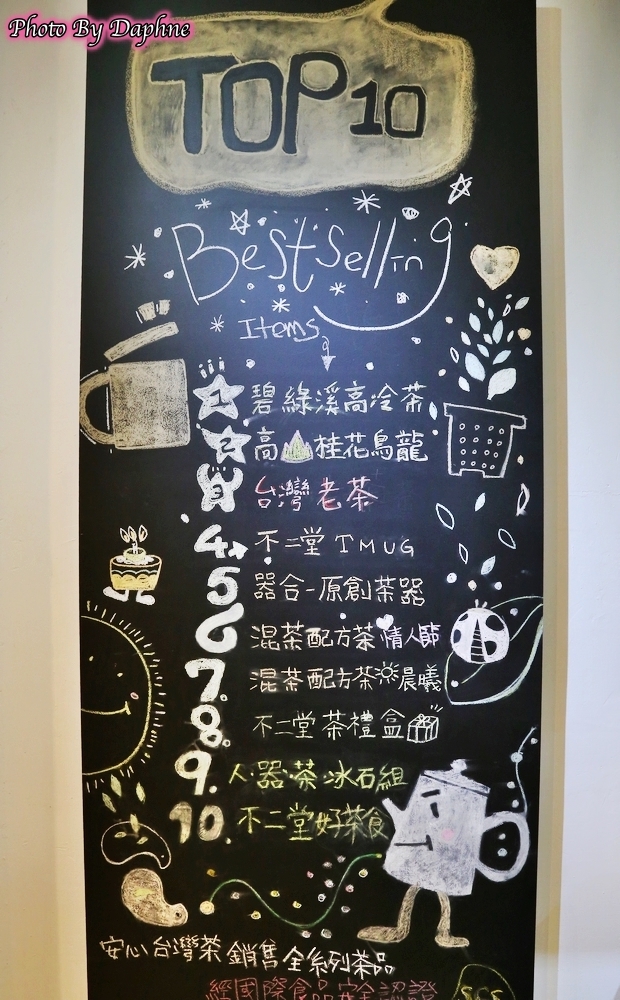 Photo By Daphne
TOP 10
Bestselling
Items
1 碧綠溪高冷茶
2 高山桂花烏龍
3 台灣老茶
4. 不二堂 TMUG
5 器合-原創茶器
6 混茶配方茶 情人節
7. 混茶配方茶 晨曦
8. 不二堂茶禮盒
9. 人·器·茶·冰石組
10. 不二堂好茶食
安心台灣茶 銷售全系列茶品
經國際食品安全認證
SGS